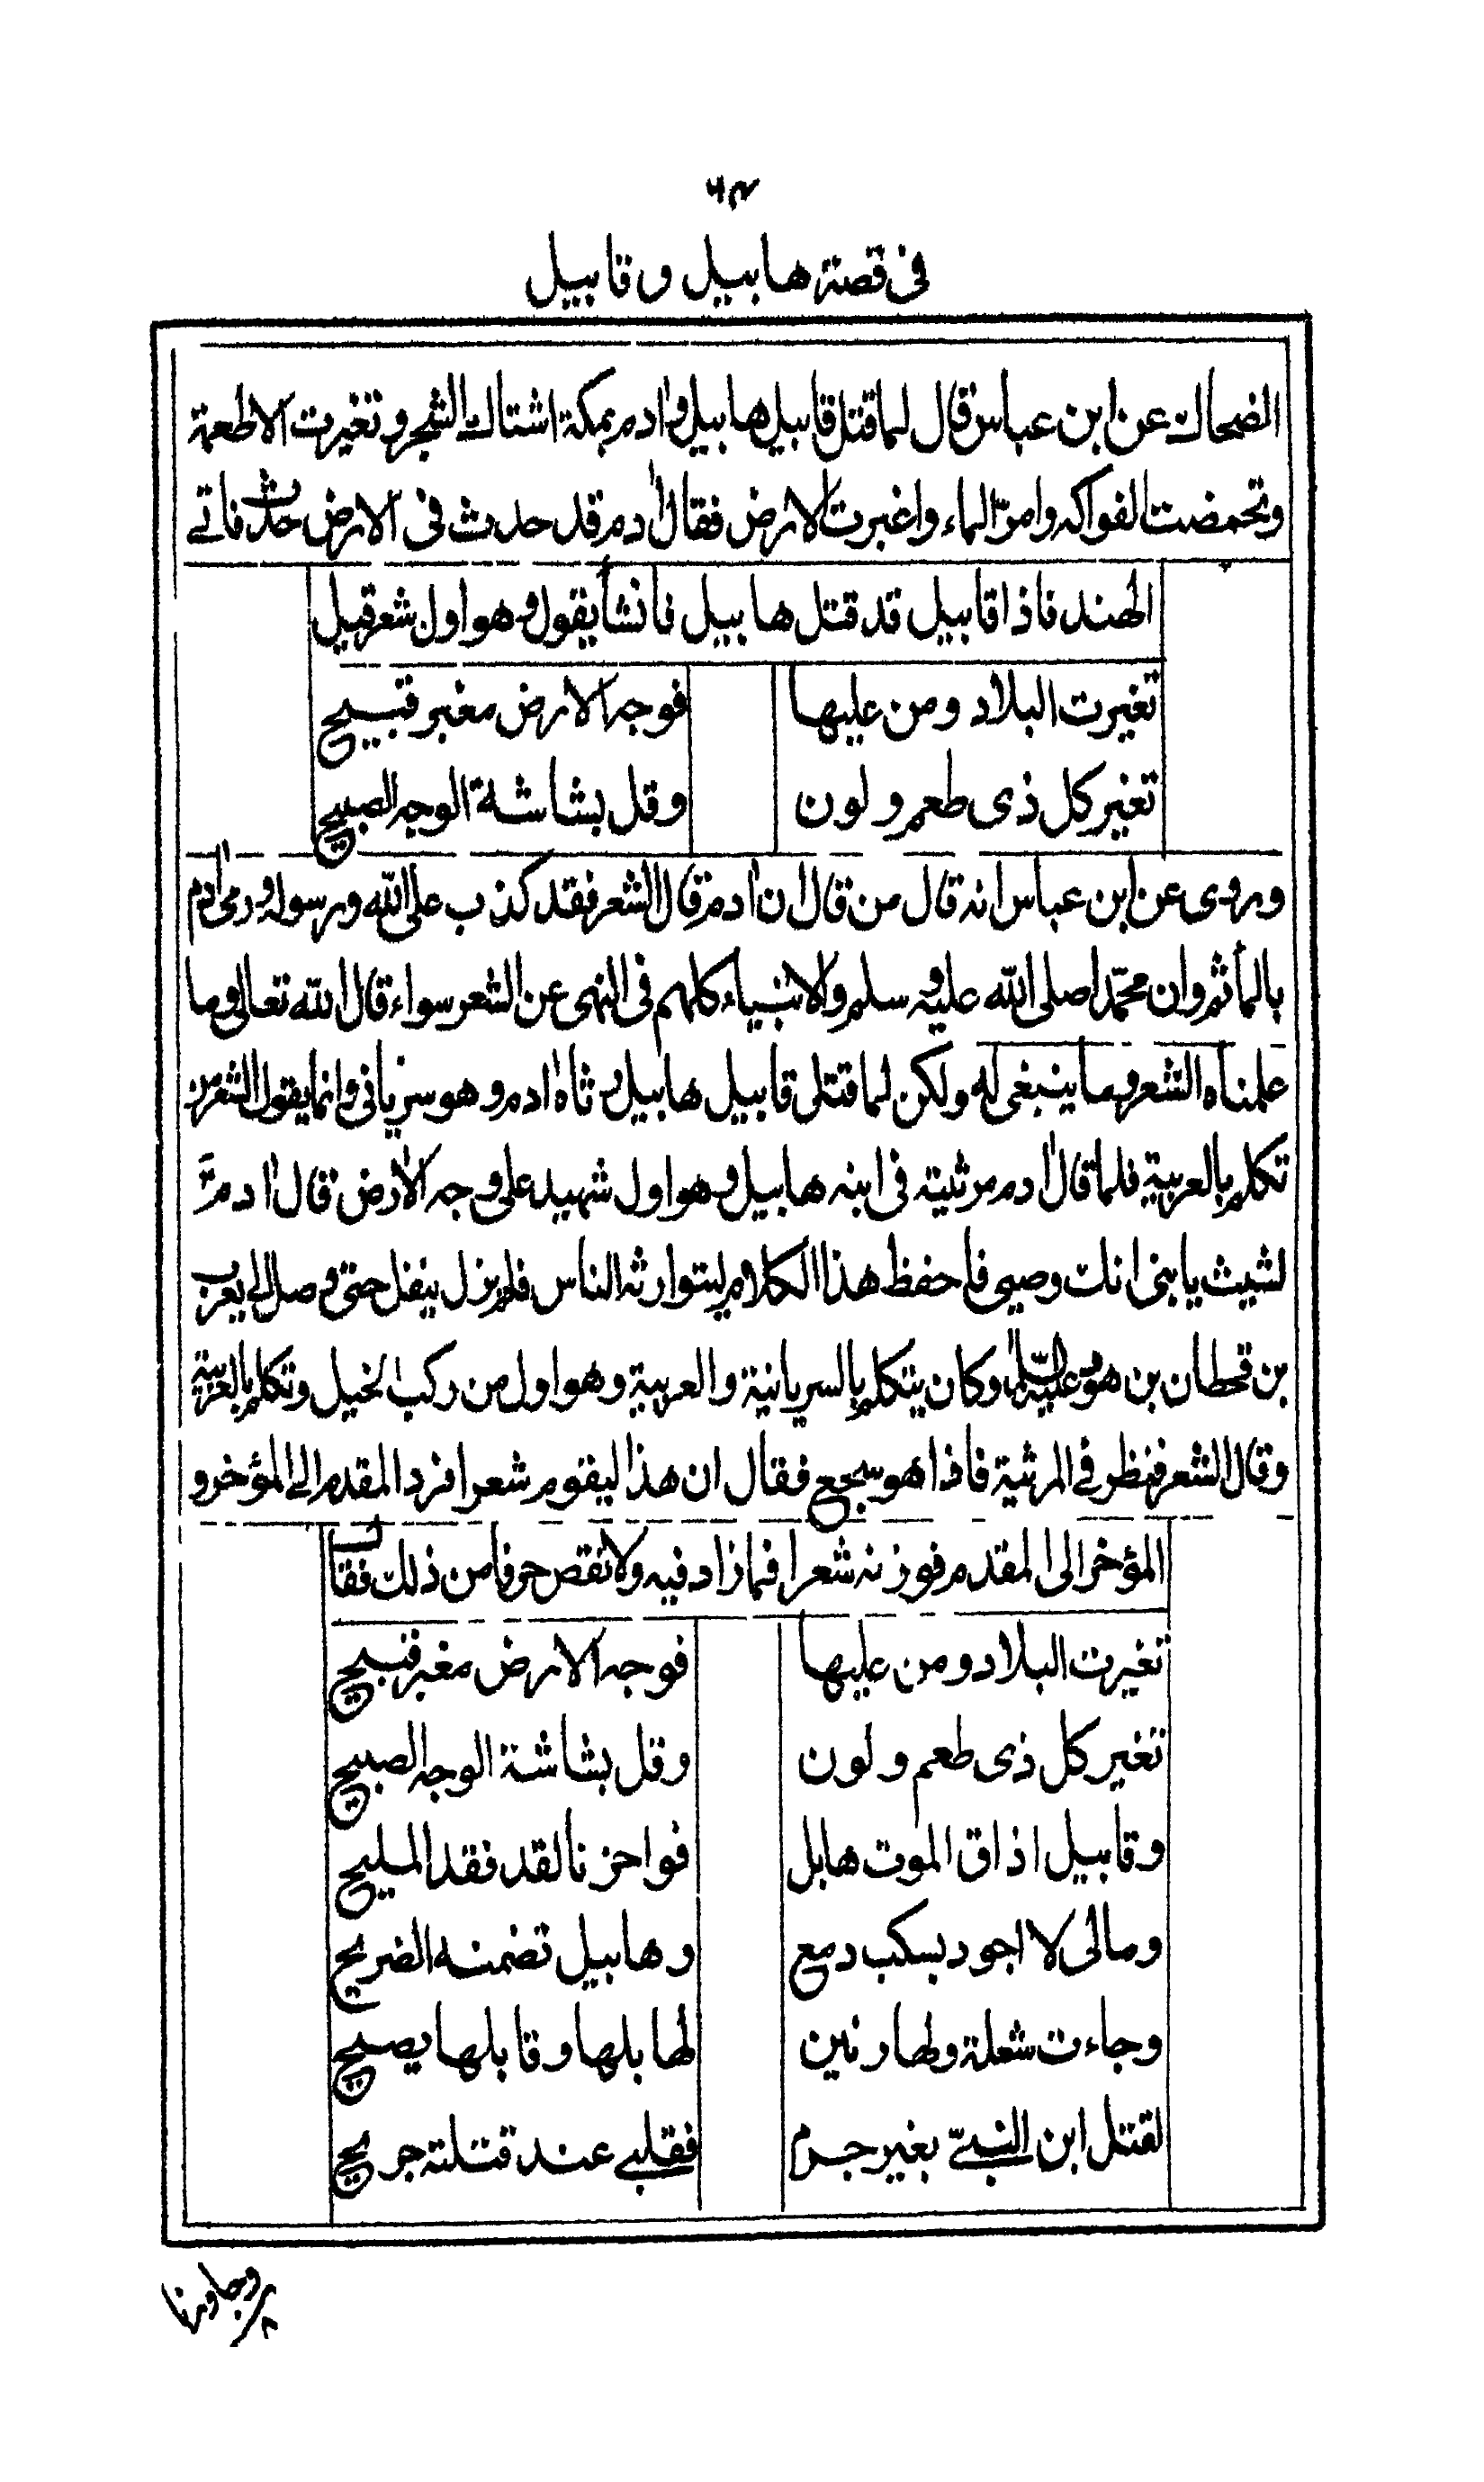 ٦٣
فى قصة هابيل وقابيل
الضحاك عن ابن عباس قال لما قتل قابيل هابيل وادم بمكة اشتاك الشجر وتغيرت الاطعمة
وتحمضت الفواكه وامرّ الماء واغبرت الارض فقال ادم قد حدث فى الارض حدث فاتے
الهند فاذا قابيل قد قتل هابيل فانشأ يقول وهو اول شعر قيل
تغيرت البلاد ومن عليها فوجه الارض مغبر قبيح
تغير كل ذى طعم ولون وقل بشاشة الوجه الصبيح
وروى عن ابن عباس انه قال من قال ان ادم قال الشعر فقد كذب على الله ورسوله ورمى ادم
بالمأثم وان محمّدا صلى الله عليه وسلم والانبياء كلهم فى النهى عن الشعر سواء قال الله تعالى وما
علمناه الشعر وما ينبغى له ولكن لما قتل قابيل هابيل رثاه ادم وهو سريانى وانما يقول الشعر من
تكلم بالعربية فلما قال ادم مرثيته فى ابنه هابيل وهو اول شهيد على وجه الارض قال ادم
لشيث يابنى انك وصيى فاحفظ هذا الكلام ليتوارثه الناس فلم يزل ينقل حتى وصل الى يعرب
بن قحطان بن هود عليه السلام وكان يتكلم بالسريانية والعربية وهو اول من ركب الخيل وتكلم بالعربية
وقال الشعر فنظر فے المرثية فاذا هو سجع فقال ان هذا ليقوم شعرا فرد المقدم الے المؤخر و
المؤخر الى المقدم فوزنه شعرا فما زاد فيه ولا نقص حرفا من ذلك فقال
تغيرت البلاد ومن عليها فوجه الارض مغبر قبيح
تغير كل ذى طعم ولون وقل بشاشة الوجه الصبيح
وقابيل اذاق الموت هابل فواحزنا لقد فقد المليح
ومالى لا اجود بسكب دمع وهابيل تضمنه الضريح
وجاءت شعلة ولها رنين لهابلها وقابلها يصيح
لقتل ابن النبيّ بغير جرم فقلبے عند قتلته جريح
وجاورنا